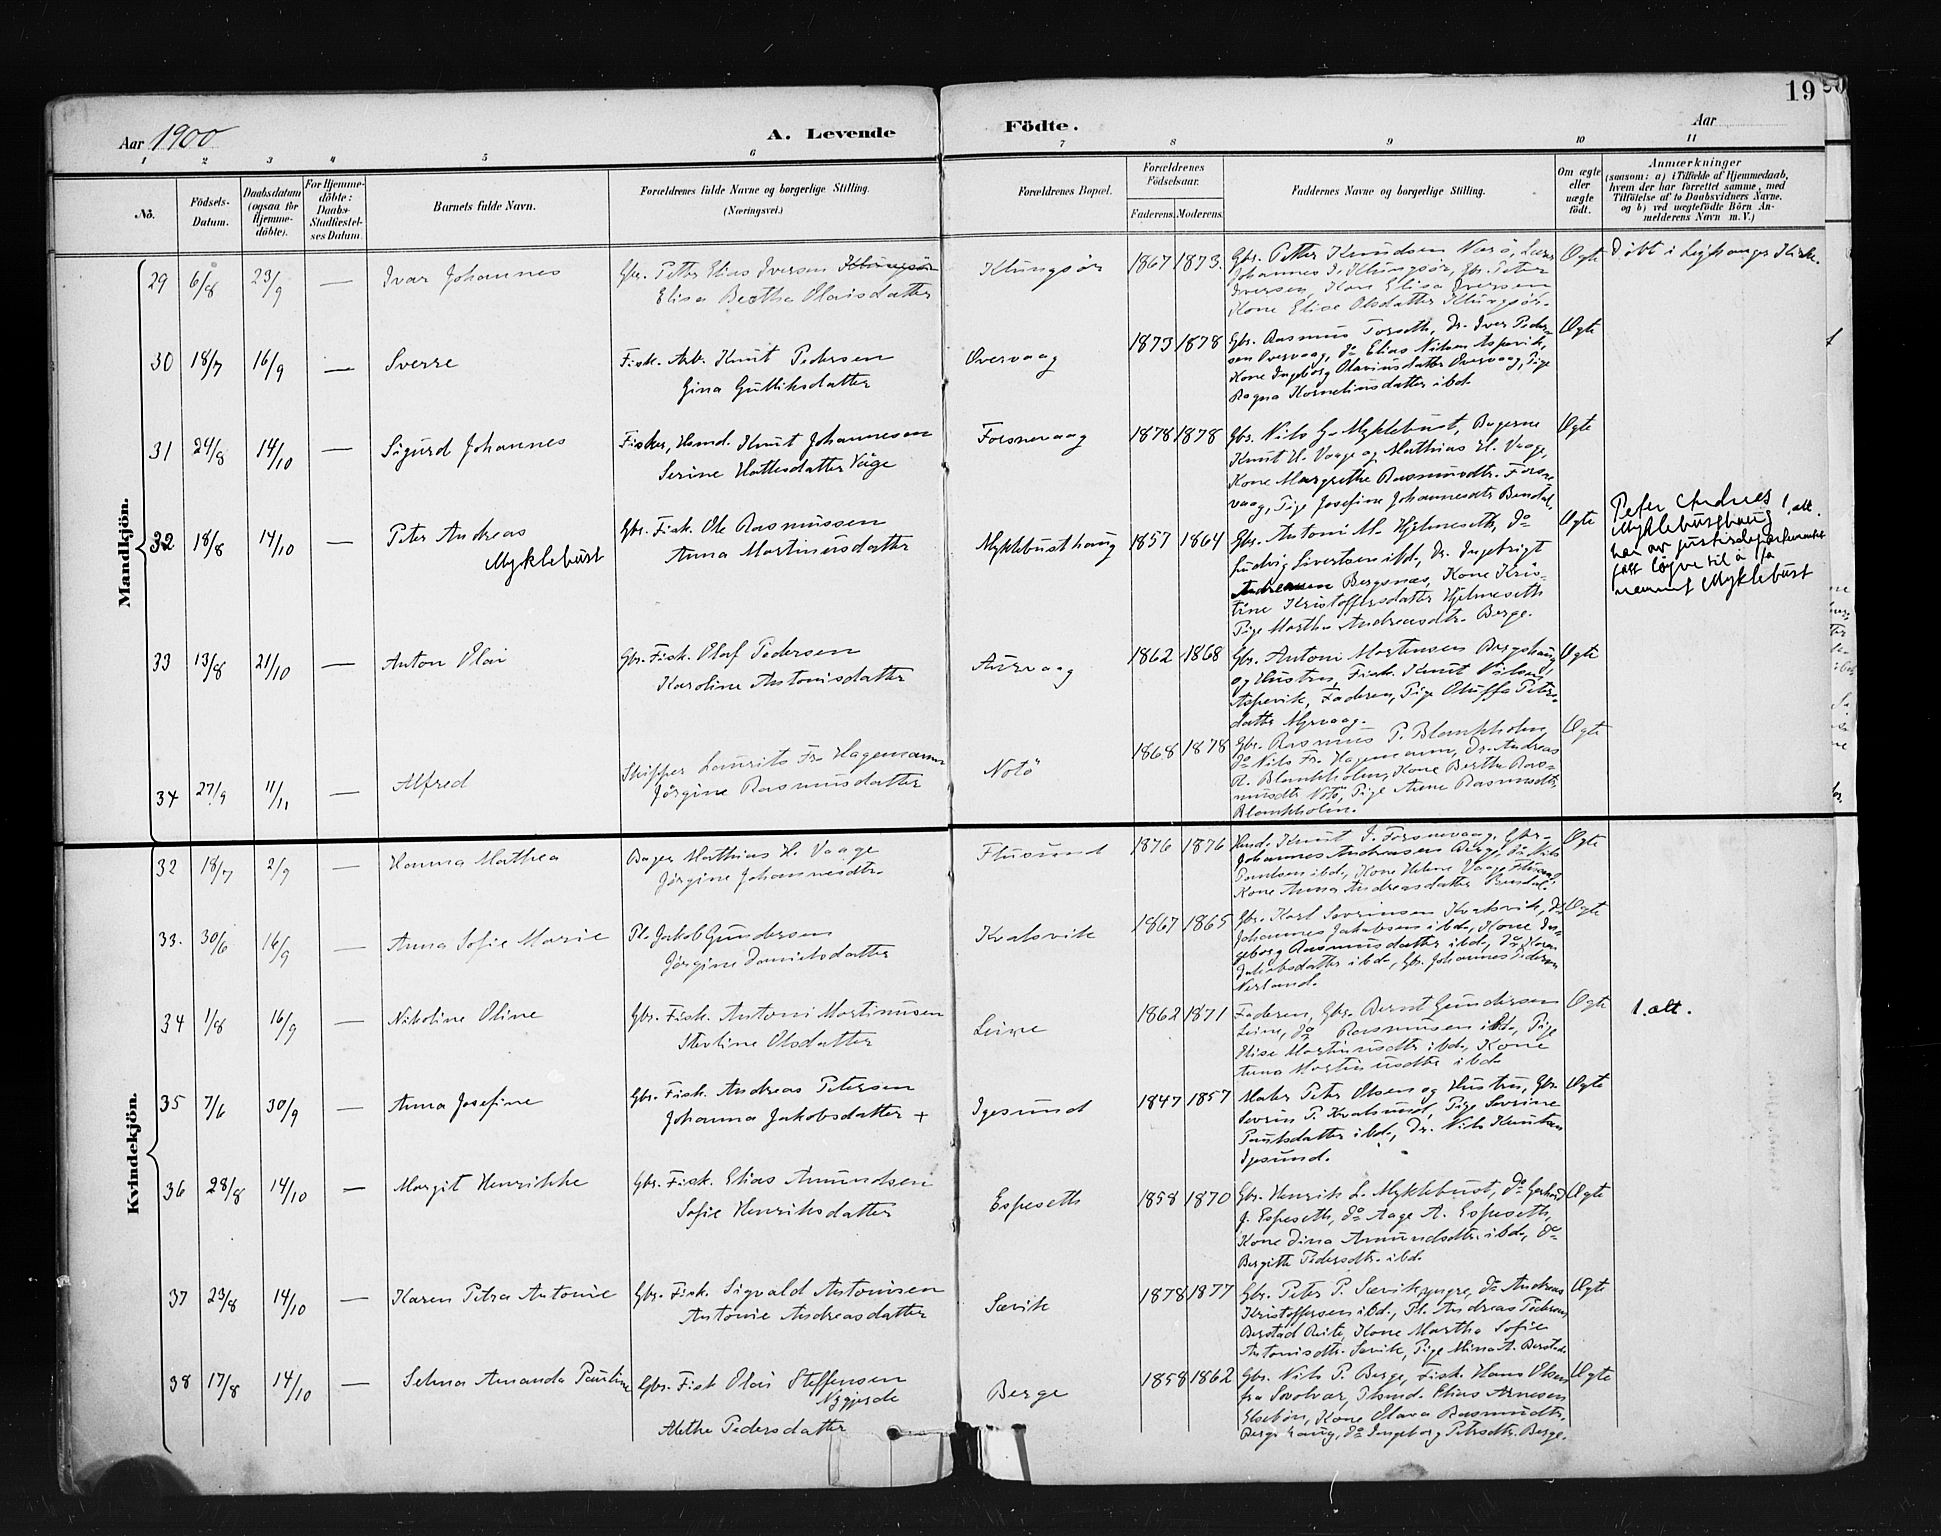 19
Aar 1900
A. Levende Födte.
Aar
1 2 3 4 5 6 7 8 9 10 11
Nô.
Födsels-Datum.
Daabsdatum (ogsaa for Hjemme-döbte).
For Hjemme-döbte: Daabs-Stadfæstel-ses Datum.
Barnets fulde Navn.
Forældrenes fulde Navne og borgerlige Stilling. (Næringsvei.)
Forældrenes Bopæl.
Forældrenes Födselsaar.
Faderens. Moderens.
Faddernes Navne og borgerlige Stilling.
Om ægte eller uægte födt.
Anmærkninger
(saasom: a) i Tilfælde af Hjemmedaab, hvem der har forrettet samme, med Tilföielse af to Daabsvidners Navne, og b) ved uægtefödte Börn An-melderens Navn m. V.)
Mandkjön.
29 6/8 23/9 — Ivar Johannes
Gbr. Petter Elias Iversen Klungsör
Elisa Berthe Olaisdatter
Klungsör 1867 1873.
Gbr. Petter Knudsen Nærö,
Johannes I. Klungsör, Gbr. Peter
Iversen, Kone Elisa Iversen
Kone Elise Olsdatter Klungsör.
Ægte
Döbt i Leikanger Kirke.
30 18/7 16/9 — Sverre
Fisk. Arb. Knut Pedersen
Gina Gulliksdatter
Overvaag 1873 1878
Gbr. Rasmus Forseth, Dr. Iver Peder-
sen Overvaag, do Elias Nilsen Aspevik,
Kone Ingeborg Olaviusdatter Overvaag, Pige
Ragna Korneliusdatter ibd.
Ægte
31 24/8 14/10 — Sigurd Johannes
Fisker, Husmd. Knut Johannesen
Serine Hattlesdatter Våge
Forsnevaag 1878 1878
Gbr. Nils G. Myklebust, Bagerne
Knut H. Vaage og Mathias H. Vaage,
Kone Margrethe Rasmusdtr. Forsne
vaag, Pige Josefine Johannesdtr Bendal,
Ægte
32 18/8 14/10 — Peter Andreas
Myklebust
Gbr. Fisk. Ole Rasmussen
Anna Martinusdatter
Myklebusthaug 1857 1864
Gbr. Antoni M. Hjelmeseth, do
Ludvig Sivertsen ibd., Dr. Ingebrigt
Andreassen Bergsnes, Kone Kris-
tine Kristoffersdatter Hjelmeseth
Pige Martha Andreasdtr. Berge.
Ægte
Peter Andreas
Myklebusthaug 1. alt.
har av justisdepartementet
fått løyve til å ta
namnet Myklebust
33 13/8 21/10 — Anton Olai
Gbr. Fisk. Olaf Pedersen
Karoline Antonisdatter
Aurvaag 1862 1868
Gbr. Antoni Mortensen Bergshaug
og Hustru, Fisk. Knut Nilsen
Aspevik, Faderen, Pige Oluffa Peters-
datter Myrvaag.
Ægte
34 27/9 11/11 — Alfred
Skipper Laurits Fr. Hagemann
Jörgine Rasmusdatter
Notö 1868 1878
Gbr. Rasmus P. Blankholm,
do Nils Fr. Hagemann, Dr. Andreas
R. Blankholm, Kone Berthe Ras-
musdtr Notö, Pige Anne Rasmusdtr.
Blankholm.
Ægte
Kvindekjön.
32 18/7 2/9 — Hanna Mathea
Bager Mathias H. Vaage
Jørgine Johannesdtr.
Flusund 1876 1876
Husmd. Knut J. Forsnevaag, Gbr.
Johannes Andreassen Berge, do Nils
Paulsen ibd., Kone Helene Vaage Flusund,
Kone Anna Andreasdatter Bendal.
Ægte
33. 30/6 16/9 — Anna Sofie Marie
Pl. Jakob Gundersen
Jørgine Danielsdatter
Kvalsvik 1867 1865
Gbr. Karl Severinsen Kvalsvik, do
Johannes Jakobsen ibd., Kone In-
geborg Rasmusdatter ibd., do
Jakobsdatter ibd., Gbr. Johannes Pedersen
Nerland.
Ægte
34 1/8 16/9 — Nikoline Oline
Gbr. Fisk. Antoni Martinusen
Steoline Olsdatter
Leine 1862 1871
Faderen, Gbr. Bernt Gundersen
Leine, do Rasmusen ibd., Pige
Elise Martinusdtr ibd., Kone
Anna Martinusdtr ibd.
Ægte
1. alt.
35 7/6 30/9 — Anna Josefine
Gbr. Fisk. Andreas Petersen
Johanna Jakobsdatter +
Igesund 1847 1857
Maler Peter Olsen og Hustru, Gbr.
Severin P. Kvalsund, Pige Severine
Paulsdatter ibd., Dr. Nils Knutsen
Igesund.
Ægte
36 28/8 14/10 — Margit Henrikke
Gbr. Fisk. Elias Amundsen
Sofie Henriksdatter
Espeseth 1858 1870
Gbr. Henrik L. Myklebust, do Gerhard
J. Espeseth, do Aage A. Espeseth,
Kone Dina Amundsdtr. ibd., do
Bergithe Pedersdtr. ibd.
Ægte
37 23/8 14/10 — Karen Petra Antonie
Gbr. Fisk. Sigvald Antonisen
Antonie Andreasdatter
Sævik 1878 1877
Gbr. Peter P. Sævik yngre, do Andreas
Kristoffersen ibd., Pl. Andreas Pedersen
Berstad Reite, Kone Martha Sofie
Antonisdtr. Sævik, Pige Mina A. Berstad.
Ægte
38 17/8 14/10 — Selma Amanda Pauline
Gbr. Fisk Olai Steffensen
Nygjerde
Alethe Pedersdatter
Berge 1858 1862
Gbr. Nils P. Berge, Fisk. Hans Olsen
fra Svolvær, Husmd. Elias Arnesen
Elsebøn, Kone Olava Rasmusdtr.
Bergshaug, do Ingeborg Petersdtr. Berge.
Ægte